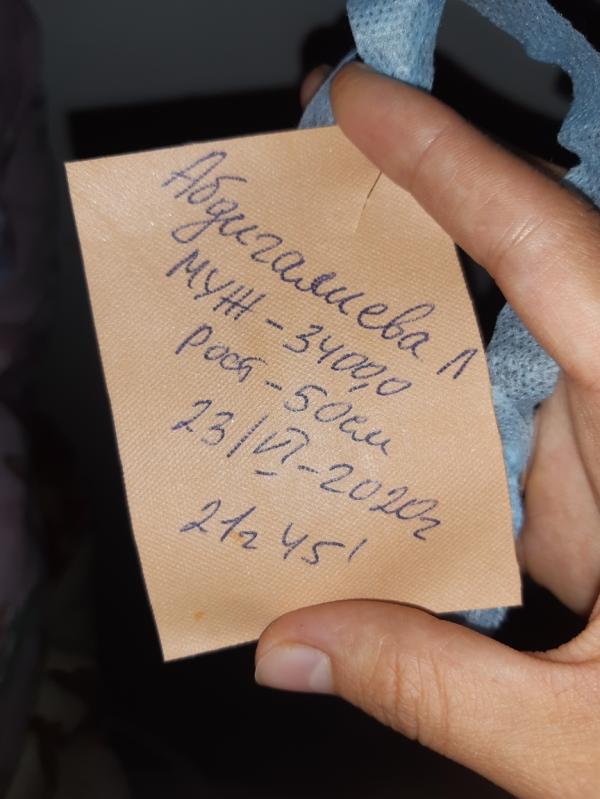 Абдигалиева Л
муж - 3400,0
рост - 50см
23/VI - 2020г
21г 45'